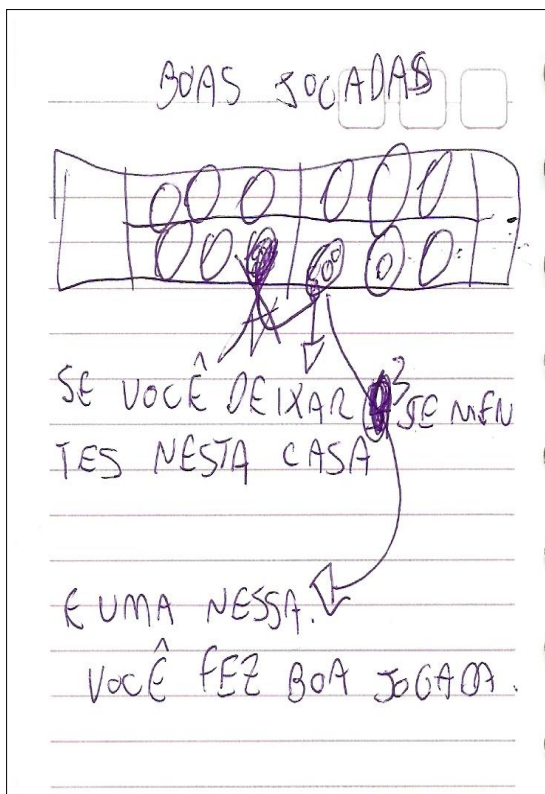 BOAS JOGADAS
SE VOCÊ DEIXAR 3 SEMEN
TES NESTA CASA
E UMA NESSA.
VOCÊ FEZ BOA JOGADA.